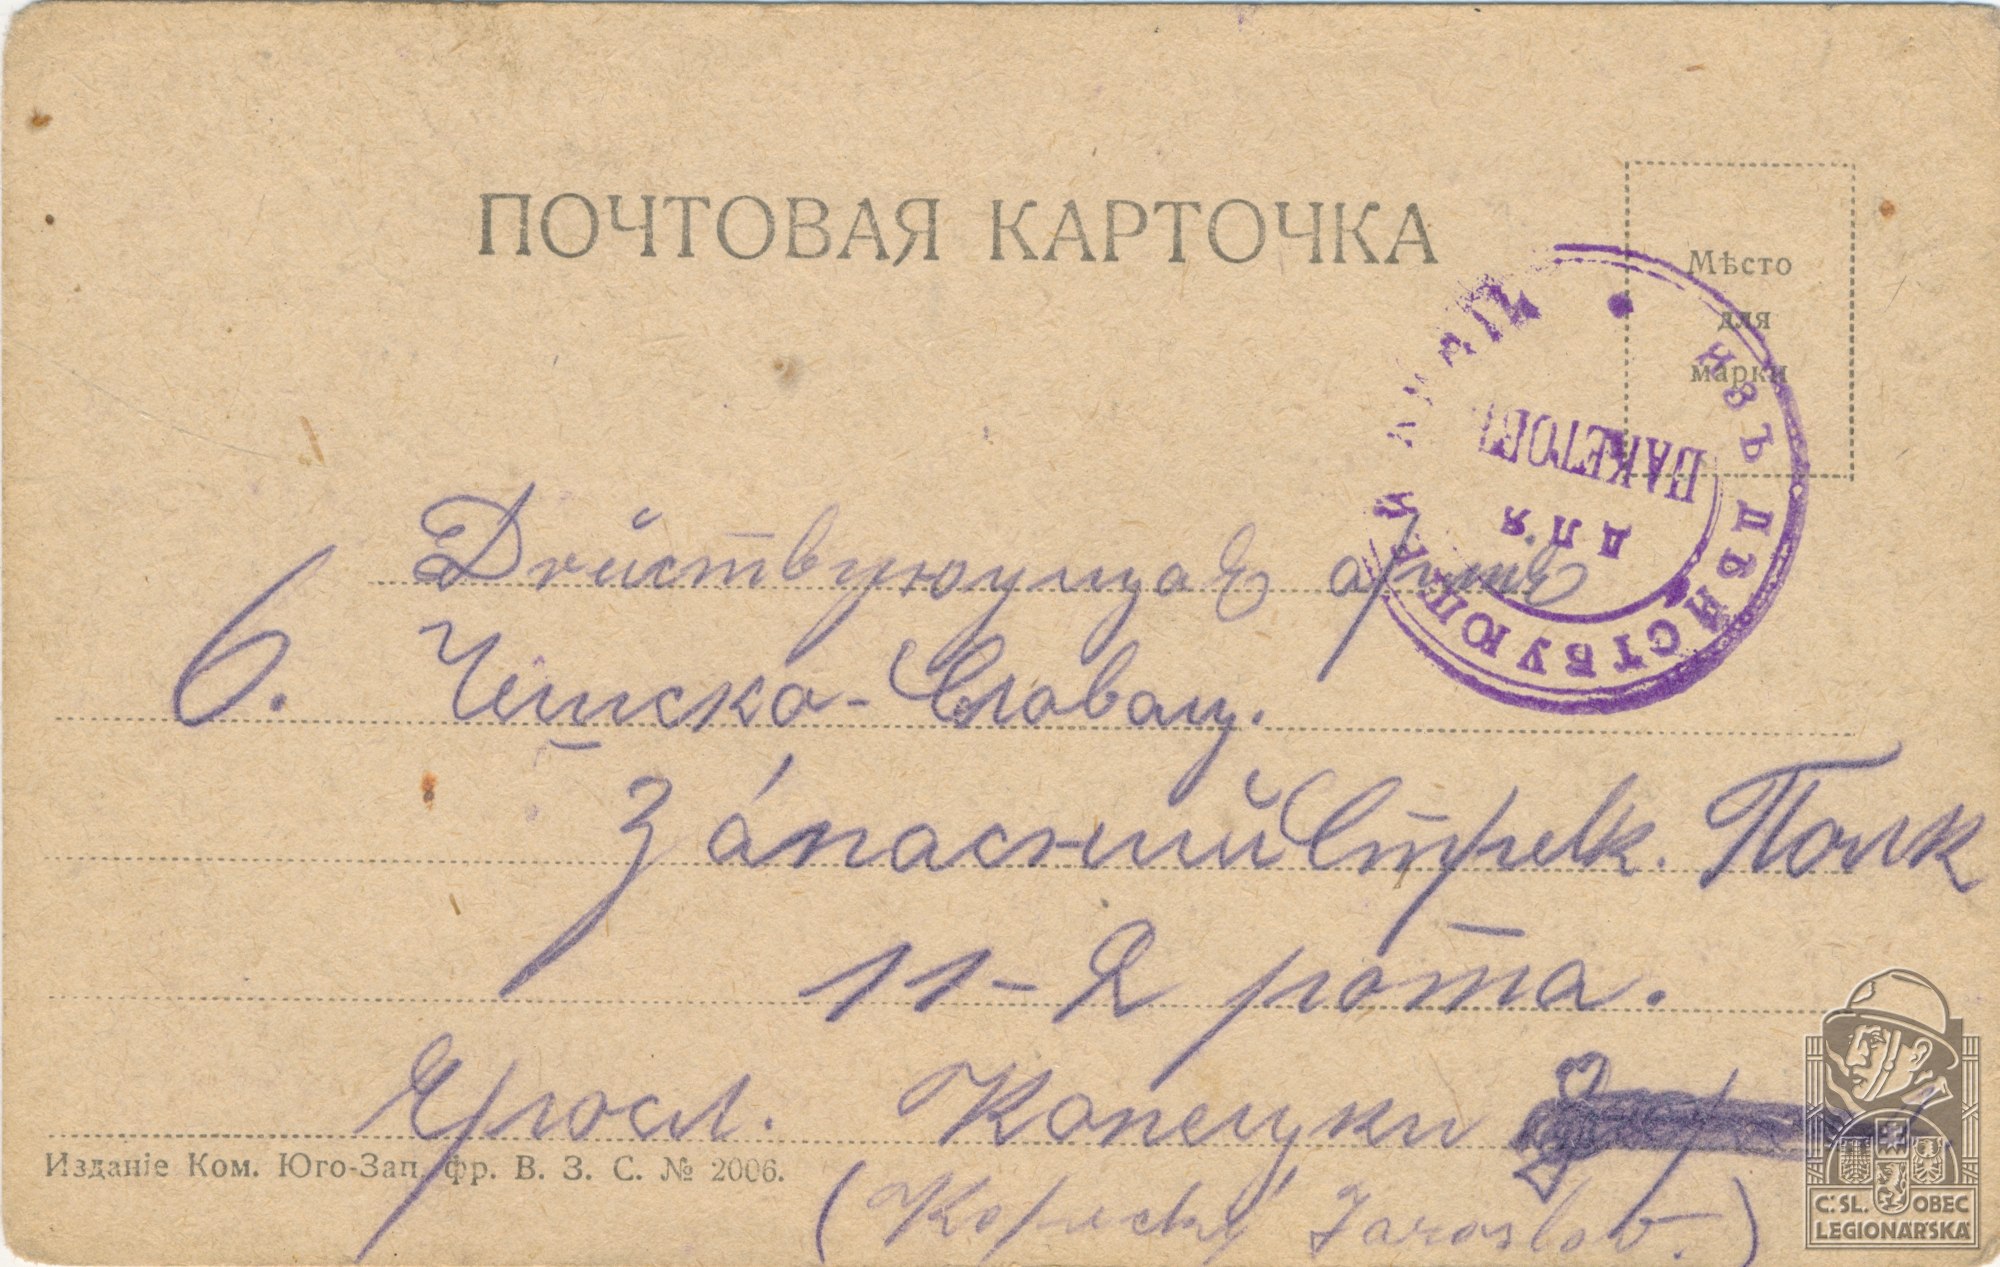 ПОЧТОВАЯ КАРТОЧКА
Мѣсто
для
марки
ИЗЪ ДѢЙСТВУЮЩЕЙ АРМІИ
для
ПАКЕТОВЪ
Действующая
6. Чешско-Словац.
Запасний Стрелк. Полк
11-я рота.
Яросл. Копецки
(Kopecký Jaroslav.)
Изданіе Ком. Юго-Зап. фр. В. З. С. № 2006.
Č SL. OBEC
LEGIONÁŘSKÁ